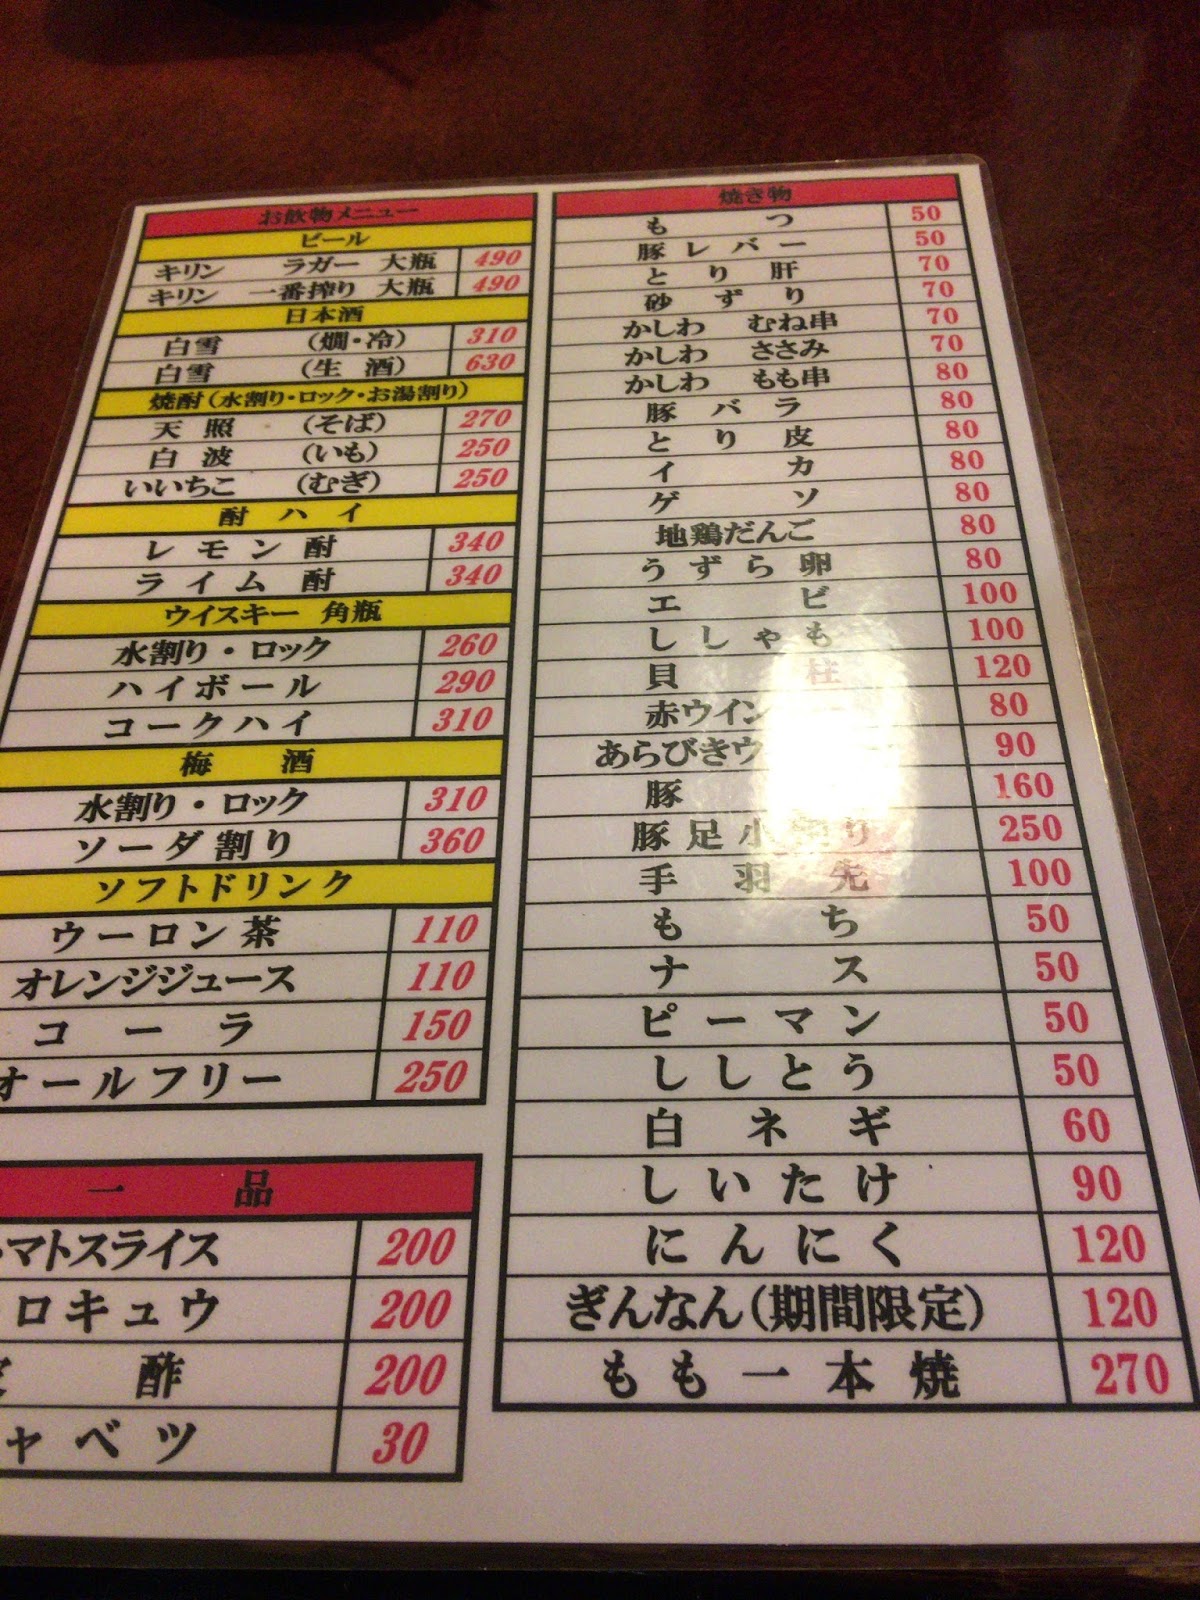 お飲物メニュー
ビール
キリン ラガー 大瓶 490
キリン 一番搾り 大瓶 490
日本酒
白雪 (燗・冷) 310
白雪 (生酒) 630
焼酎(水割り・ロック・お湯割り)
天照 (そば) 270
白波 (いも) 250
いいちこ (むぎ) 250
酎ハイ
レモン酎 340
ライム酎 340
ウイスキー 角瓶
水割り・ロック 260
ハイボール 290
コークハイ 310
梅酒
水割り・ロック 310
ソーダ割り 360
ソフトドリンク
ウーロン茶 110
オレンジジュース 110
コーラ 150
オールフリー 250
一品
マトスライス 200
ロキュウ 200
酢 200
ャベツ 30
焼き物
もつ 50
豚レバー 50
とり肝 70
砂ずり 70
かしわ むね串 70
かしわ ささみ 70
かしわ もも串 80
豚バラ 80
とり皮 80
イカ 80
ゲソ 80
地鶏だんご 80
うずら卵 80
エビ 100
ししゃも 100
貝柱 120
赤ウイン 80
あらびきウ 90
豚 160
豚足小 り 250
手羽先 100
もち 50
ナス 50
ピーマン 50
ししとう 50
白ネギ 60
しいたけ 90
にんにく 120
ぎんなん(期間限定) 120
もも一本焼 270